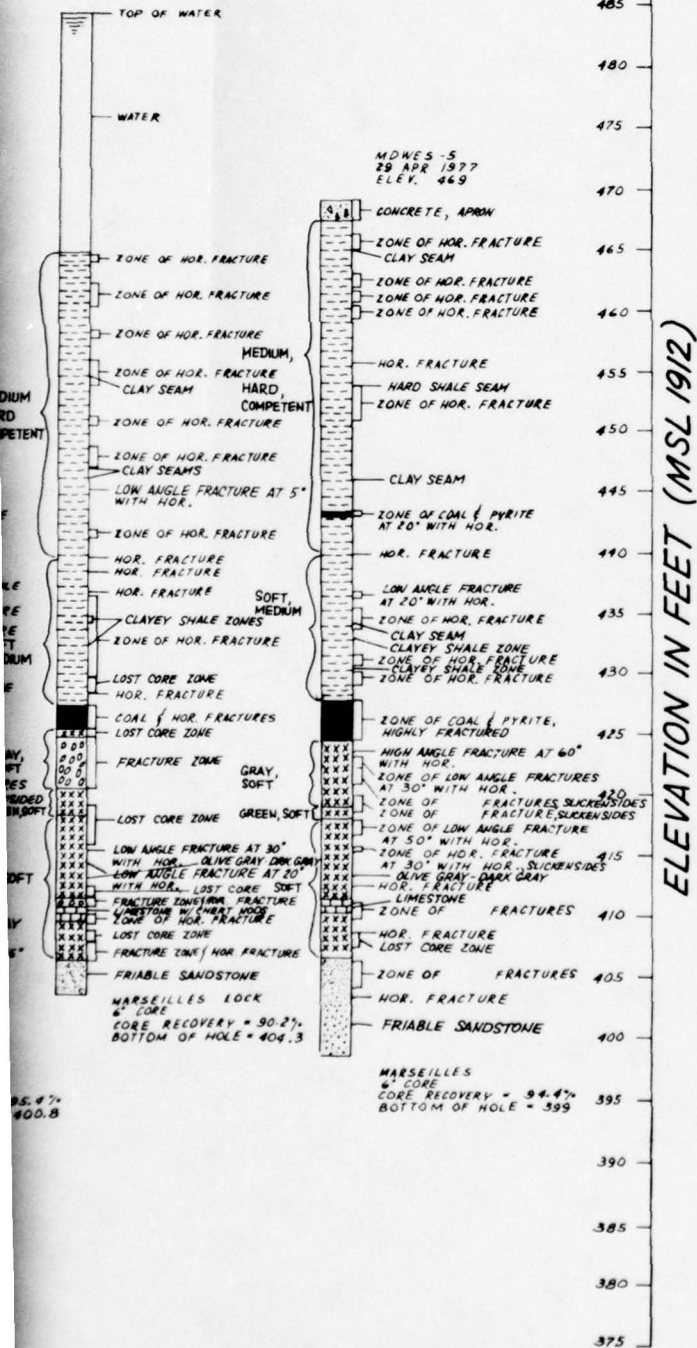 TOP OF WATER
WATER
ZONE OF HOR. FRACTURE
ZONE OF HOR. FRACTURE
ZONE OF HOR. FRACTURE
ZONE OF HOR. FRACTURE
CLAY SEAM
ZONE OF HOR. FRACTURE
ZONE OF HOR. FRACTURE
CLAY SEAMS
LOW ANGLE FRACTURE AT 5°
WITH HOR.
ZONE OF HOR. FRACTURE
HOR. FRACTURE
HOR. FRACTURE
HOR. FRACTURE
CLAYEY SHALE ZONES
ZONE OF HOR. FRACTURE
LOST CORE ZONE
HOR. FRACTURE
COAL & HOR. FRACTURES
LOST CORE ZONE
FRACTURE ZONE
LOST CORE ZONE
LOW ANGLE FRACTURE AT 30°
WITH HOR. OLIVE GRAY DARK GRAY
LOW ANGLE FRACTURE AT 20°
WITH HOR. LOST CORE SOFT
FRACTURE ZONE/HOR. FRACTURE
LIMESTONE W/CHERT NODS
ZONE OF HOR. FRACTURE
LOST CORE ZONE
FRACTURE ZONE/HOR FRACTURE
FRIABLE SANDSTONE
MARSEILLES LOCK
6" CORE
CORE RECOVERY = 90.2%
BOTTOM OF HOLE = 404.3
95.4%
400.8
MDWES-5
29 APR 1977
ELEV. 469
CONCRETE, APRON
ZONE OF HOR. FRACTURE
CLAY SEAM
ZONE OF HOR. FRACTURE
ZONE OF HOR. FRACTURE
ZONE OF HOR. FRACTURE
MEDIUM,
HARD,
COMPETENT
HOR. FRACTURE
HARD SHALE SEAM
ZONE OF HOR. FRACTURE
CLAY SEAM
ZONE OF COAL & PYRITE
AT 20° WITH HOR.
HOR. FRACTURE
SOFT,
MEDIUM
LOW ANGLE FRACTURE
AT 20° WITH HOR.
ZONE OF HOR. FRACTURE
CLAY SEAM
CLAYEY SHALE ZONE
ZONE OF HOR. FRACTURE
CLAYEY SHALE ZONE
ZONE OF HOR. FRACTURE
ZONE OF COAL & PYRITE,
HIGHLY FRACTURED
GRAY,
SOFT
HIGH ANGLE FRACTURE AT 60°
WITH HOR.
ZONE OF LOW ANGLE FRACTURES
AT 30° WITH HOR.
GREEN, SOFT
ZONE OF FRACTURES, SLICKENSIDES
ZONE OF FRACTURE, SLICKENSIDES
ZONE OF LOW ANGLE FRACTURE
AT 50° WITH HOR.
ZONE OF HOR. FRACTURE
AT 30° WITH HOR., SLICKENSIDES
OLIVE GRAY-DARK GRAY
HOR. FRACTURE
LIMESTONE
ZONE OF FRACTURES
HOR. FRACTURE
LOST CORE ZONE
ZONE OF FRACTURES
HOR. FRACTURE
FRIABLE SANDSTONE
MARSEILLES
6" CORE
CORE RECOVERY = 94.4%
BOTTOM OF HOLE = 399
485
480
475
470
465
460
455
450
445
440
435
430
425
420
415
410
405
400
395
390
385
380
375
ELEVATION IN FEET (MSL 1912)